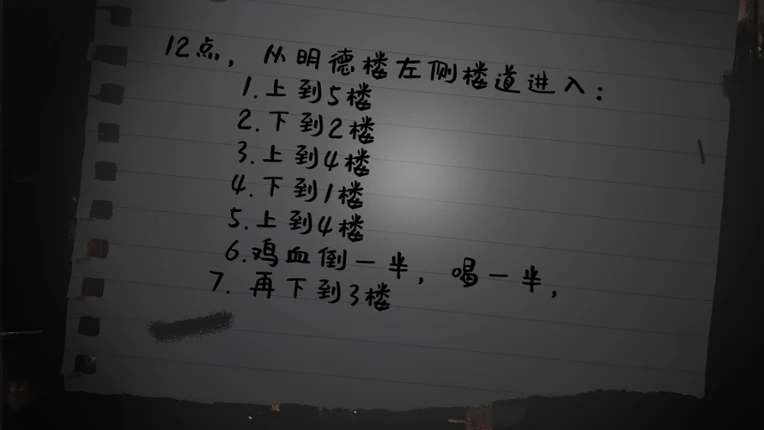 12点，从明德楼左侧楼道进入：
1.上到5楼
2.下到2楼
3.上到4楼
4.下到1楼
5.上到4楼
6.鸡血倒一半，喝一半，
7.再下到3楼